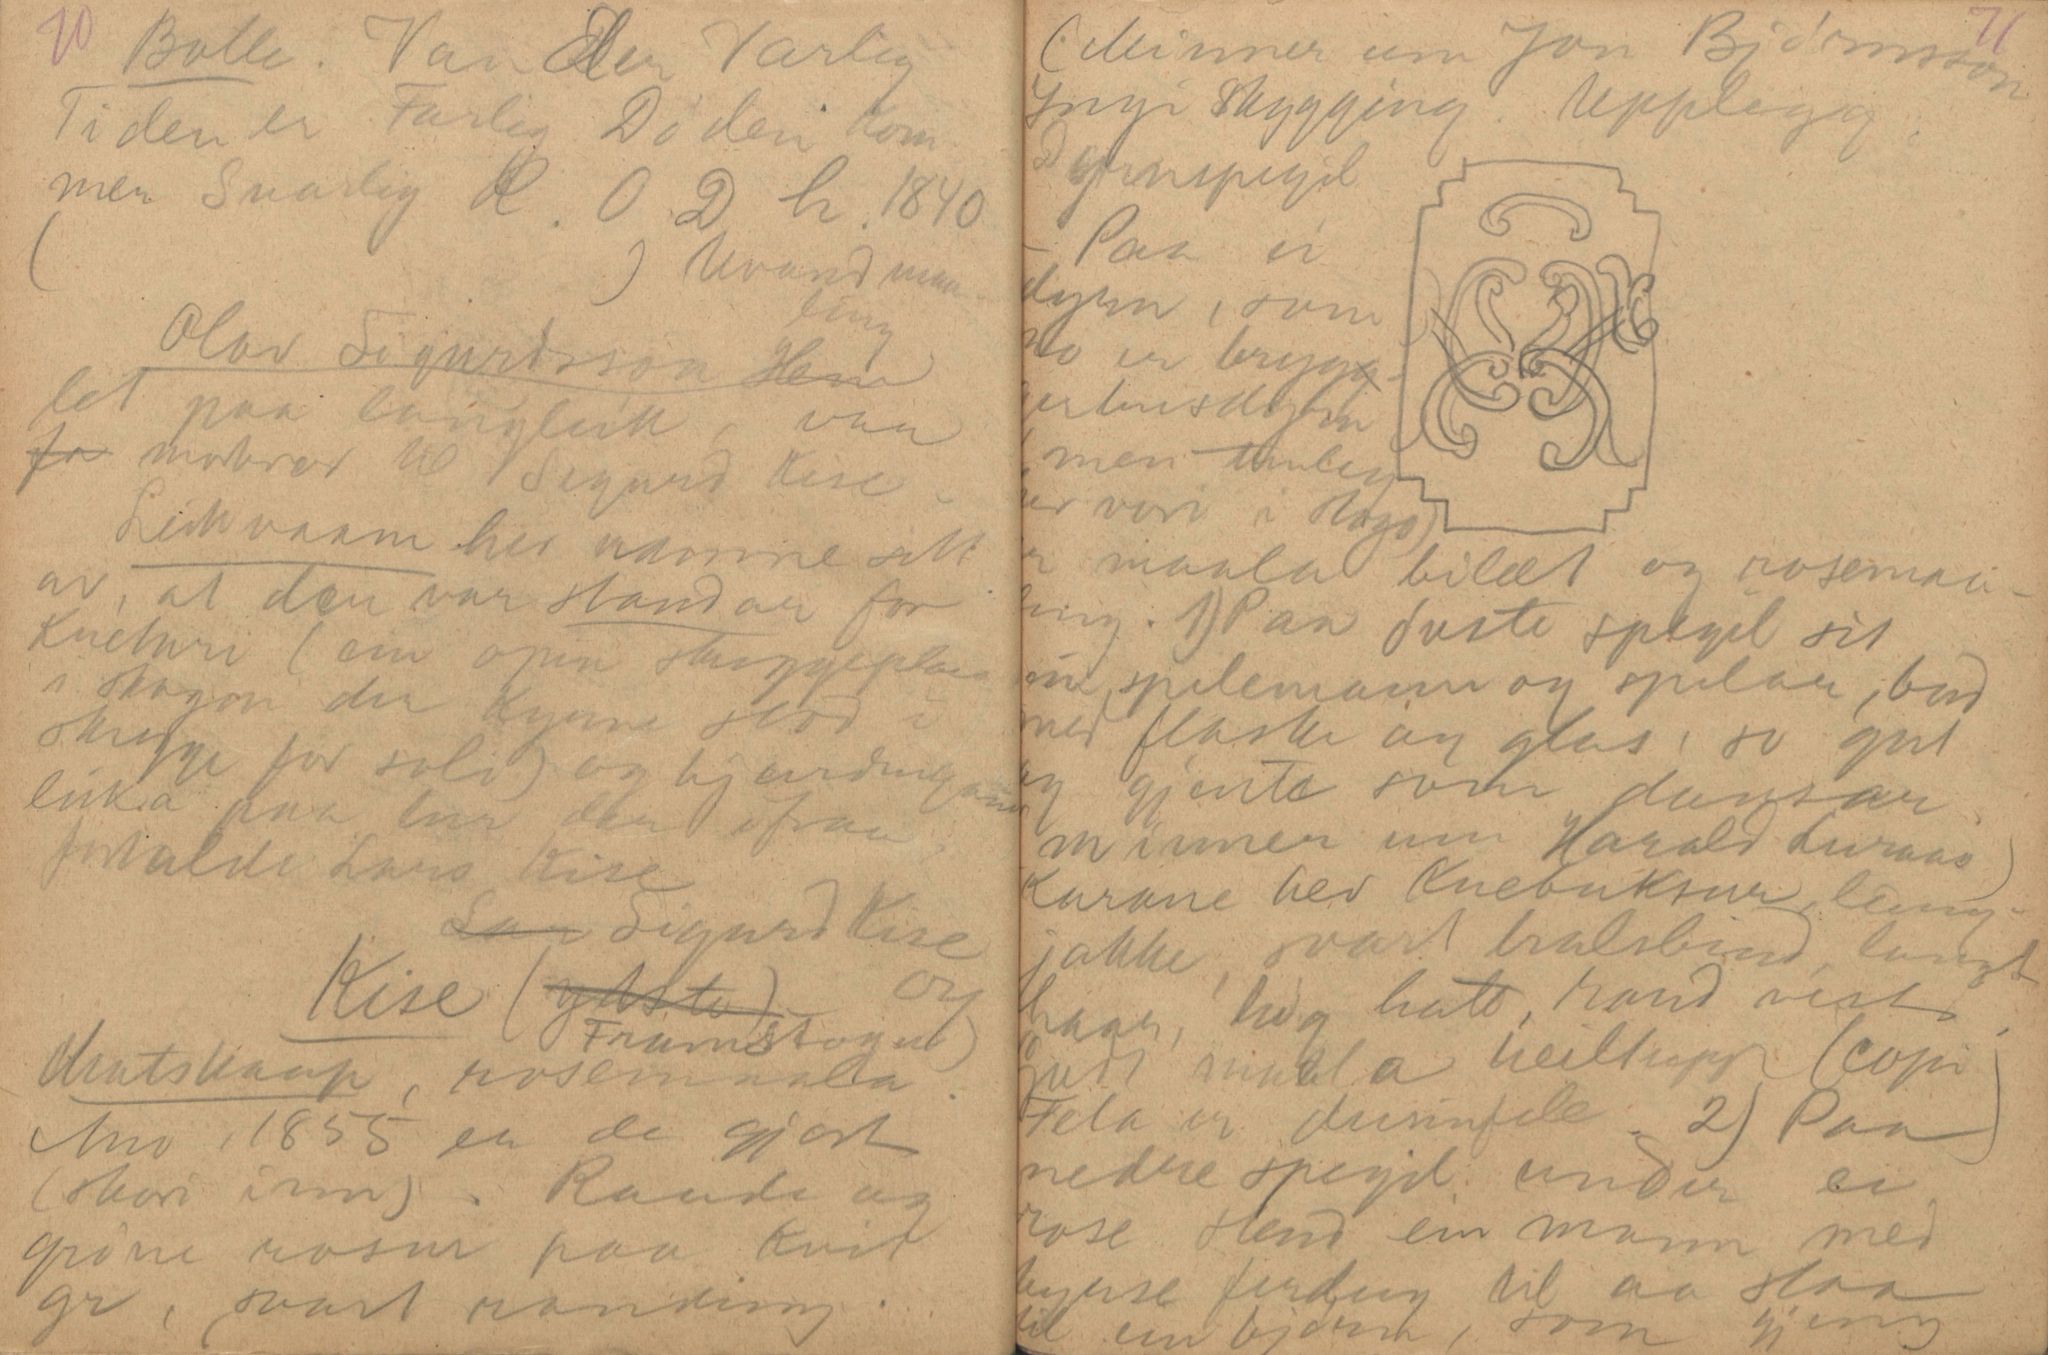 70
Bolle. Van Der Varlig
Tiden er Farlig Döden Kom-
mer Snarlig K. O. D h. 1840
( ) Uvand maa-
ling
Olav Sigurdsson Hem
let paa langleik, var
fa morbror til Sigurd Kise.
Leikvaam hev namne sitt
av, at den var standar for
Kueturi (ein open skuggeplass
i skogen der Kyrne stod i
skugge for soli) og hjuringane
leika paa lur der ifraa,
fortalde Lars Kise
Lar Sigurd Kise
Kise (ydste) og
Framistogu)
Matskaap, rosemaala.
Ano, 1855 er de gjort
(skori inn). Raude og
gröne rosur paa Kvit
gr, svart randing.
71
(Minner um Jon Björnsson
Yngi Skygging. Upplegg.
Dyrnspegil
Paa ei
dyrn, som
no er brygg-
gerhusdyrn
(men truleg
hev vori i stogo)
er maala bilæt og rosemaa-
ling. 1) Paa övste spegil sit
ein spelemann og spelar, bord
med flaske og glas, so gut
og gjente som dansar
(minner um Harald Luraas)
Karane hev Knebuksur, lang-
jakke, svart halsbind, langt
haar, hög hatt, rand vest,
godt maala heiltupp (copi)
Fela er dusinfele. 2) Paa
nedre spegil. under ei
rose stend ein mann med
byrse ferdug til aa skaa
til ein björn, som gjeng